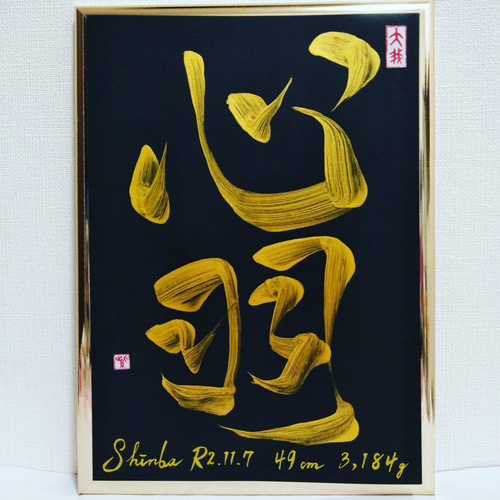 心
羽
Shinba R2.11.7 49cm 3,184g